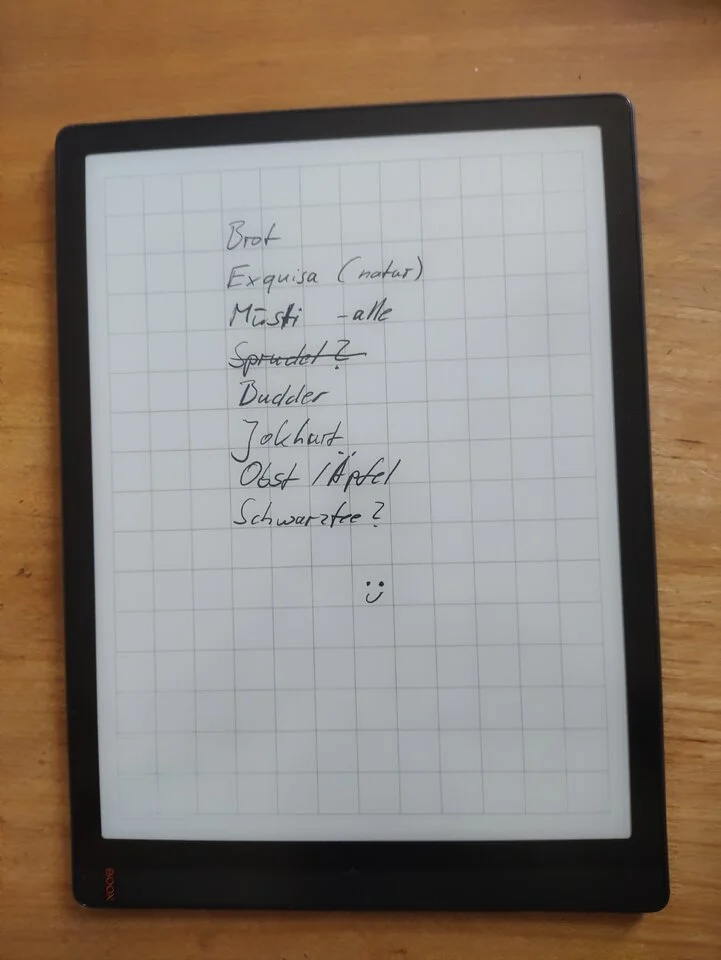 Brot
Exquisa (natur)
Müsli -alle
Sprudel ?
Budder
Jokhurt
Obst / Äpfel
Schwarztee ?
BOOX